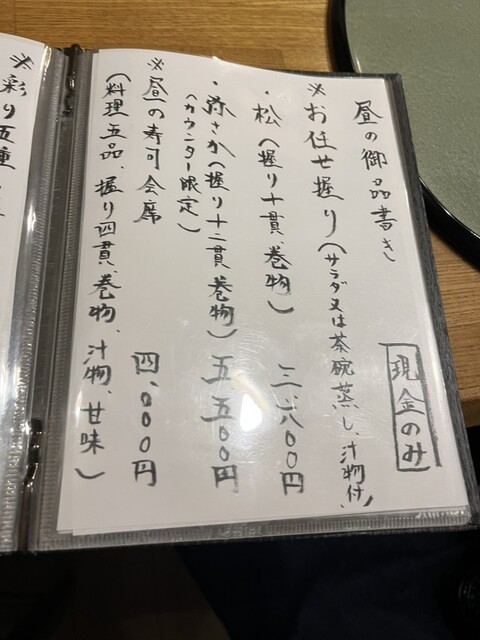 昼の御品書き
現金のみ
※お任せ握り(サラダ又は茶碗蒸し、汁物付)
・松(握り十貫、巻物) 三、八〇〇円
・弥さか(握り十二貫、巻物) 五、五〇〇円
(カウンター限定)
※昼の寿司会席 四、〇〇〇円
(料理五品、握り四貫、巻物、汁物、甘味)
※彩り五種